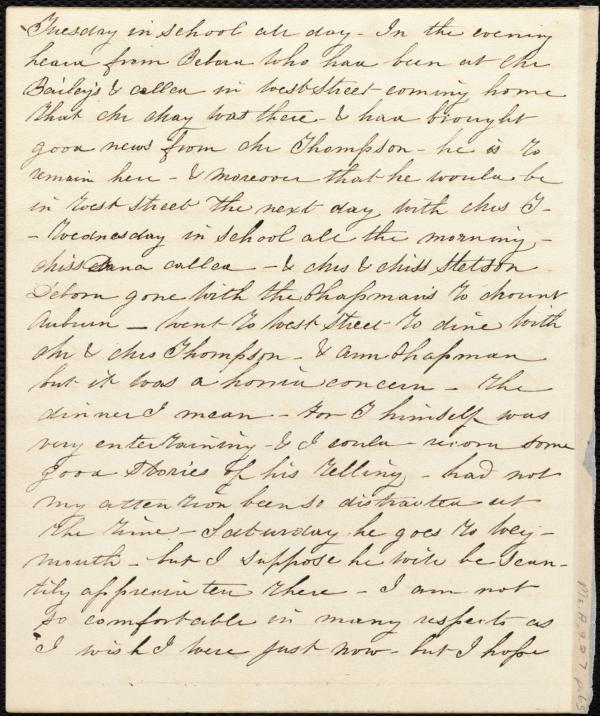 Tuesday in school all day - In the evening
heard from Debora who had been at the
Bailey's & called in West Street coming home
that Mr May was there - & had brought
good news from Mr Thompson - he is to
remain here - & moreover that he would be
in West Street the next day with Mrs T -
- Wednesday in school all the morning -
Miss Dana called - & Mrs & Miss Stetson
Debora gone with the Chapman's to Mount
Auburn - went to West Street to dine with
Mr & Mrs Thompson - & Ann Chapman
but it was a horrid concern - the
dinner I mean - for T himself was
very entertaining - & I could record some
good stories of his telling - had not
my attention been so distracted at
the time - Saturday he goes to Wey-
mouth - but I suppose he will be scan-
tily appreciated there - I am not
so comfortable in many respects as
I wish I were just now - but I hope
Ms.A.9.2.7 p.65